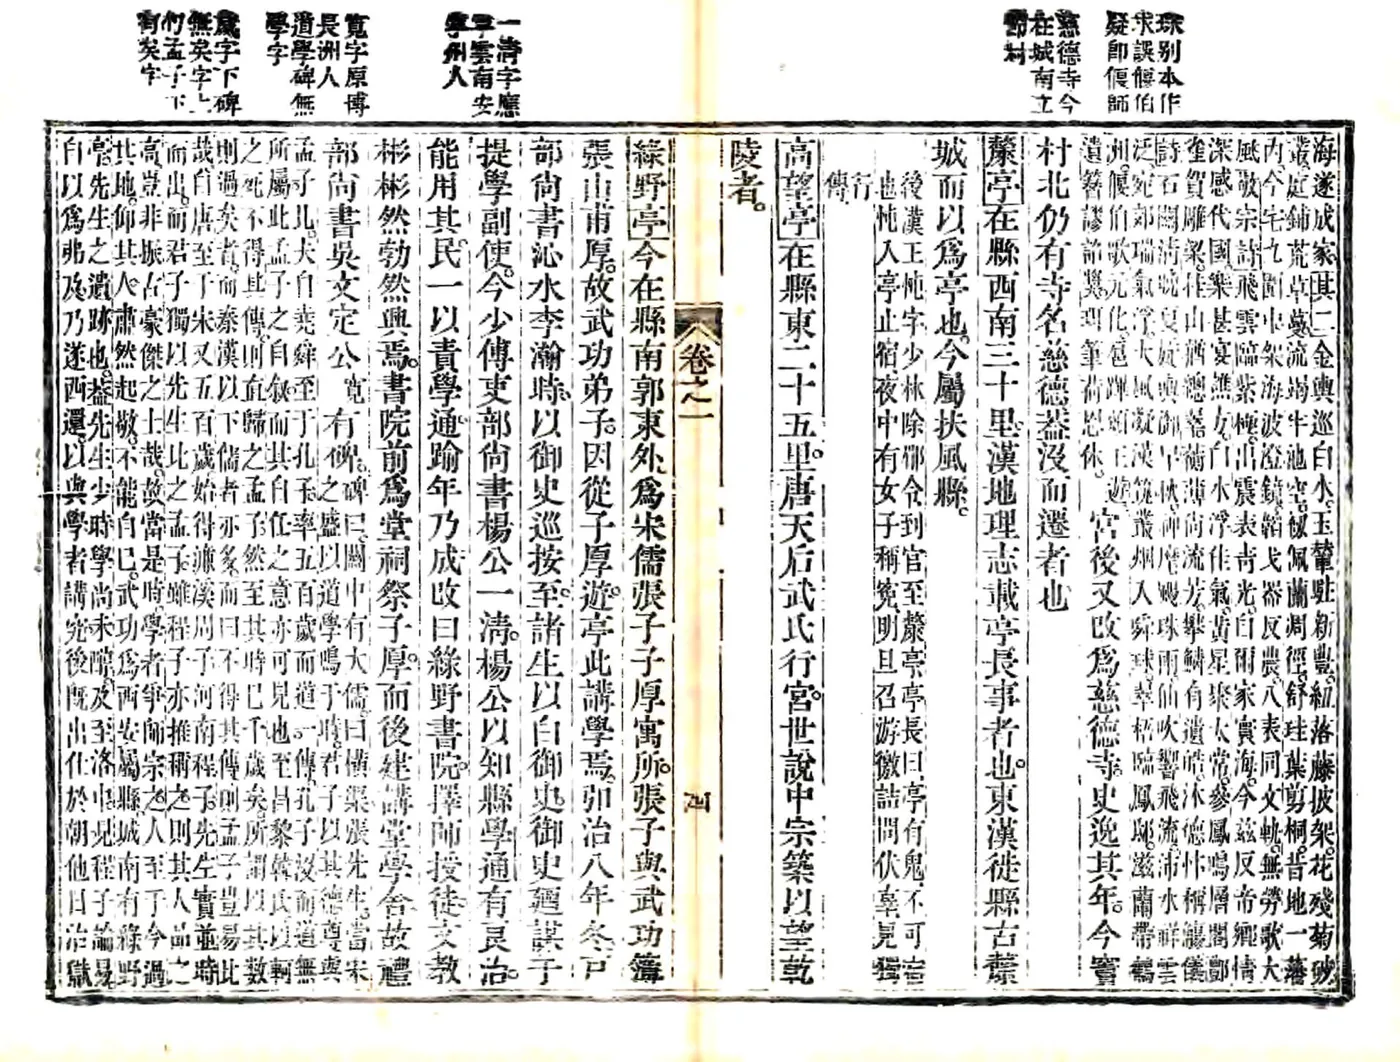 珠別本作
求誤偃伯
疑卽偃師
慈德寺今
在城南立
節村
一清字應
寧雲南安
寧州人
寬字原博
長洲人
道學碑無
學字
歲字下碑
無矣字上
何孟子下
有矣字
海遂成家其二金輿巡白水玉輦駐新豐紐落藤披架花殘菊破
叢庭鋪荒草蔓流竭半池空紉佩蘭凋徑舒珪葉剪桐昔地一蕃
內今宅九圍中架海波澄鏡韜戈器反農八表同文軌無勞歌大
風敬宗詩飛雲臨紫極出震表青光自爾家寰海今茲反帝鄉情
深感代國樂甚宴譙方白水浮佳氣黃星聚太常參鳳鳴層閣酆
雀賀雕梁桂山猶總翠蘅薄尚流芳攀鱗有遺皓沐德抃稱觴儀
村北仍有寺名慈德葢沒而遷者也
宮後又改爲慈德寺史逸其年今竇
斄亭在縣西南三十里漢地理志載亭長事者也東漢徙縣古斄
城而以爲亭也今屬扶風縣
後漢王忳字少林除郿令到官至斄亭亭長曰亭有鬼不可宿
也忳入亭止宿夜中有女子稱寃明旦召游徼詰問伏辜見獨
行
傳
高望亭在縣東二十五里唐天后武氏行宮世說中宗築以望乾
陵者
卷之一
綠野亭今在縣南郭東外爲宋儒張子子厚寓所張子與武功簿
張山甫厚故武功弟子因從子厚遊亭此講學焉弘治八年冬戶
部尚書沁水李瀚時以御史巡按至諸生以白御史御史廼謀于
提學副使今少傅吏部尚書楊公一清楊公以知縣學通有良治
能用其民一以責學通踰年乃成改曰綠野書院擇師授徒文敎
彬彬然勃然興焉書院前爲堂祠祭子厚而後建講堂學舍故禮
部尚書吳文定公寬有碑碑曰關中有大儒曰橫渠張先生當宋
之盛以道學鳴于時君子以其德尊與
孟子比夫自堯舜至于孔子率五百歲而道一傳孔子沒而道無
所屬此孟子之自叙而其自任之意亦可見也至昌黎韓氏以軻
之死不得其傳則直歸之孟子然至其時已千歲矣所謂以其數
則過矣者而秦漢以下儒者亦多而曰不得其傳則孟子豈易比
哉自唐至于宋又五百歲始得濂溪周子河南程子先生實並時
而出而君子獨以先生比之孟子雖程子亦推稱之則其人品之
高豈非振古豪傑之士哉故當是時學者爭師宗之人至于今過
其地仰其人肅然起敬不能自已武功爲西安屬縣城南有綠野
亭先生之遺跡也葢先生少時學尚未醇及至洛中見程子論易
自以爲弗及乃遂西還以與學者講究後旣出仕於朝他日治獄